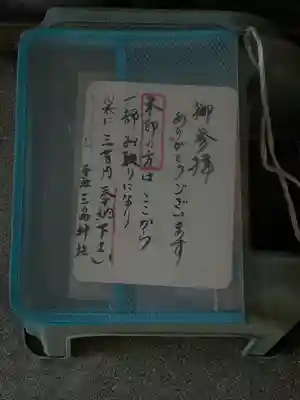 御参拝
ありがとうございます
朱印の方はここから
一部お取りになり
三百円奉納下さい
三島神社